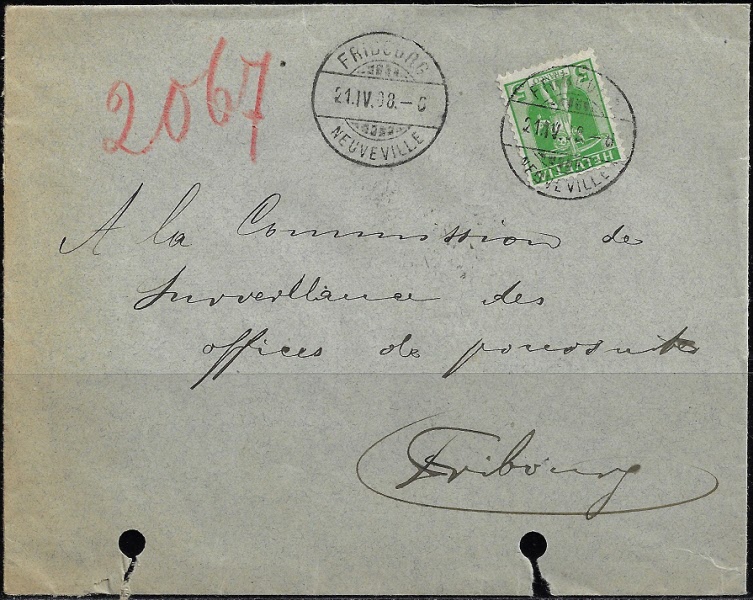 2067
FRIBOURG
21.IV.08.-6
NEUVEVILLE
5 5
HELVETIA
21.IV
NEUVEVILLE
A la Commission de
Surveillance des
offices de poursuites
Fribourg